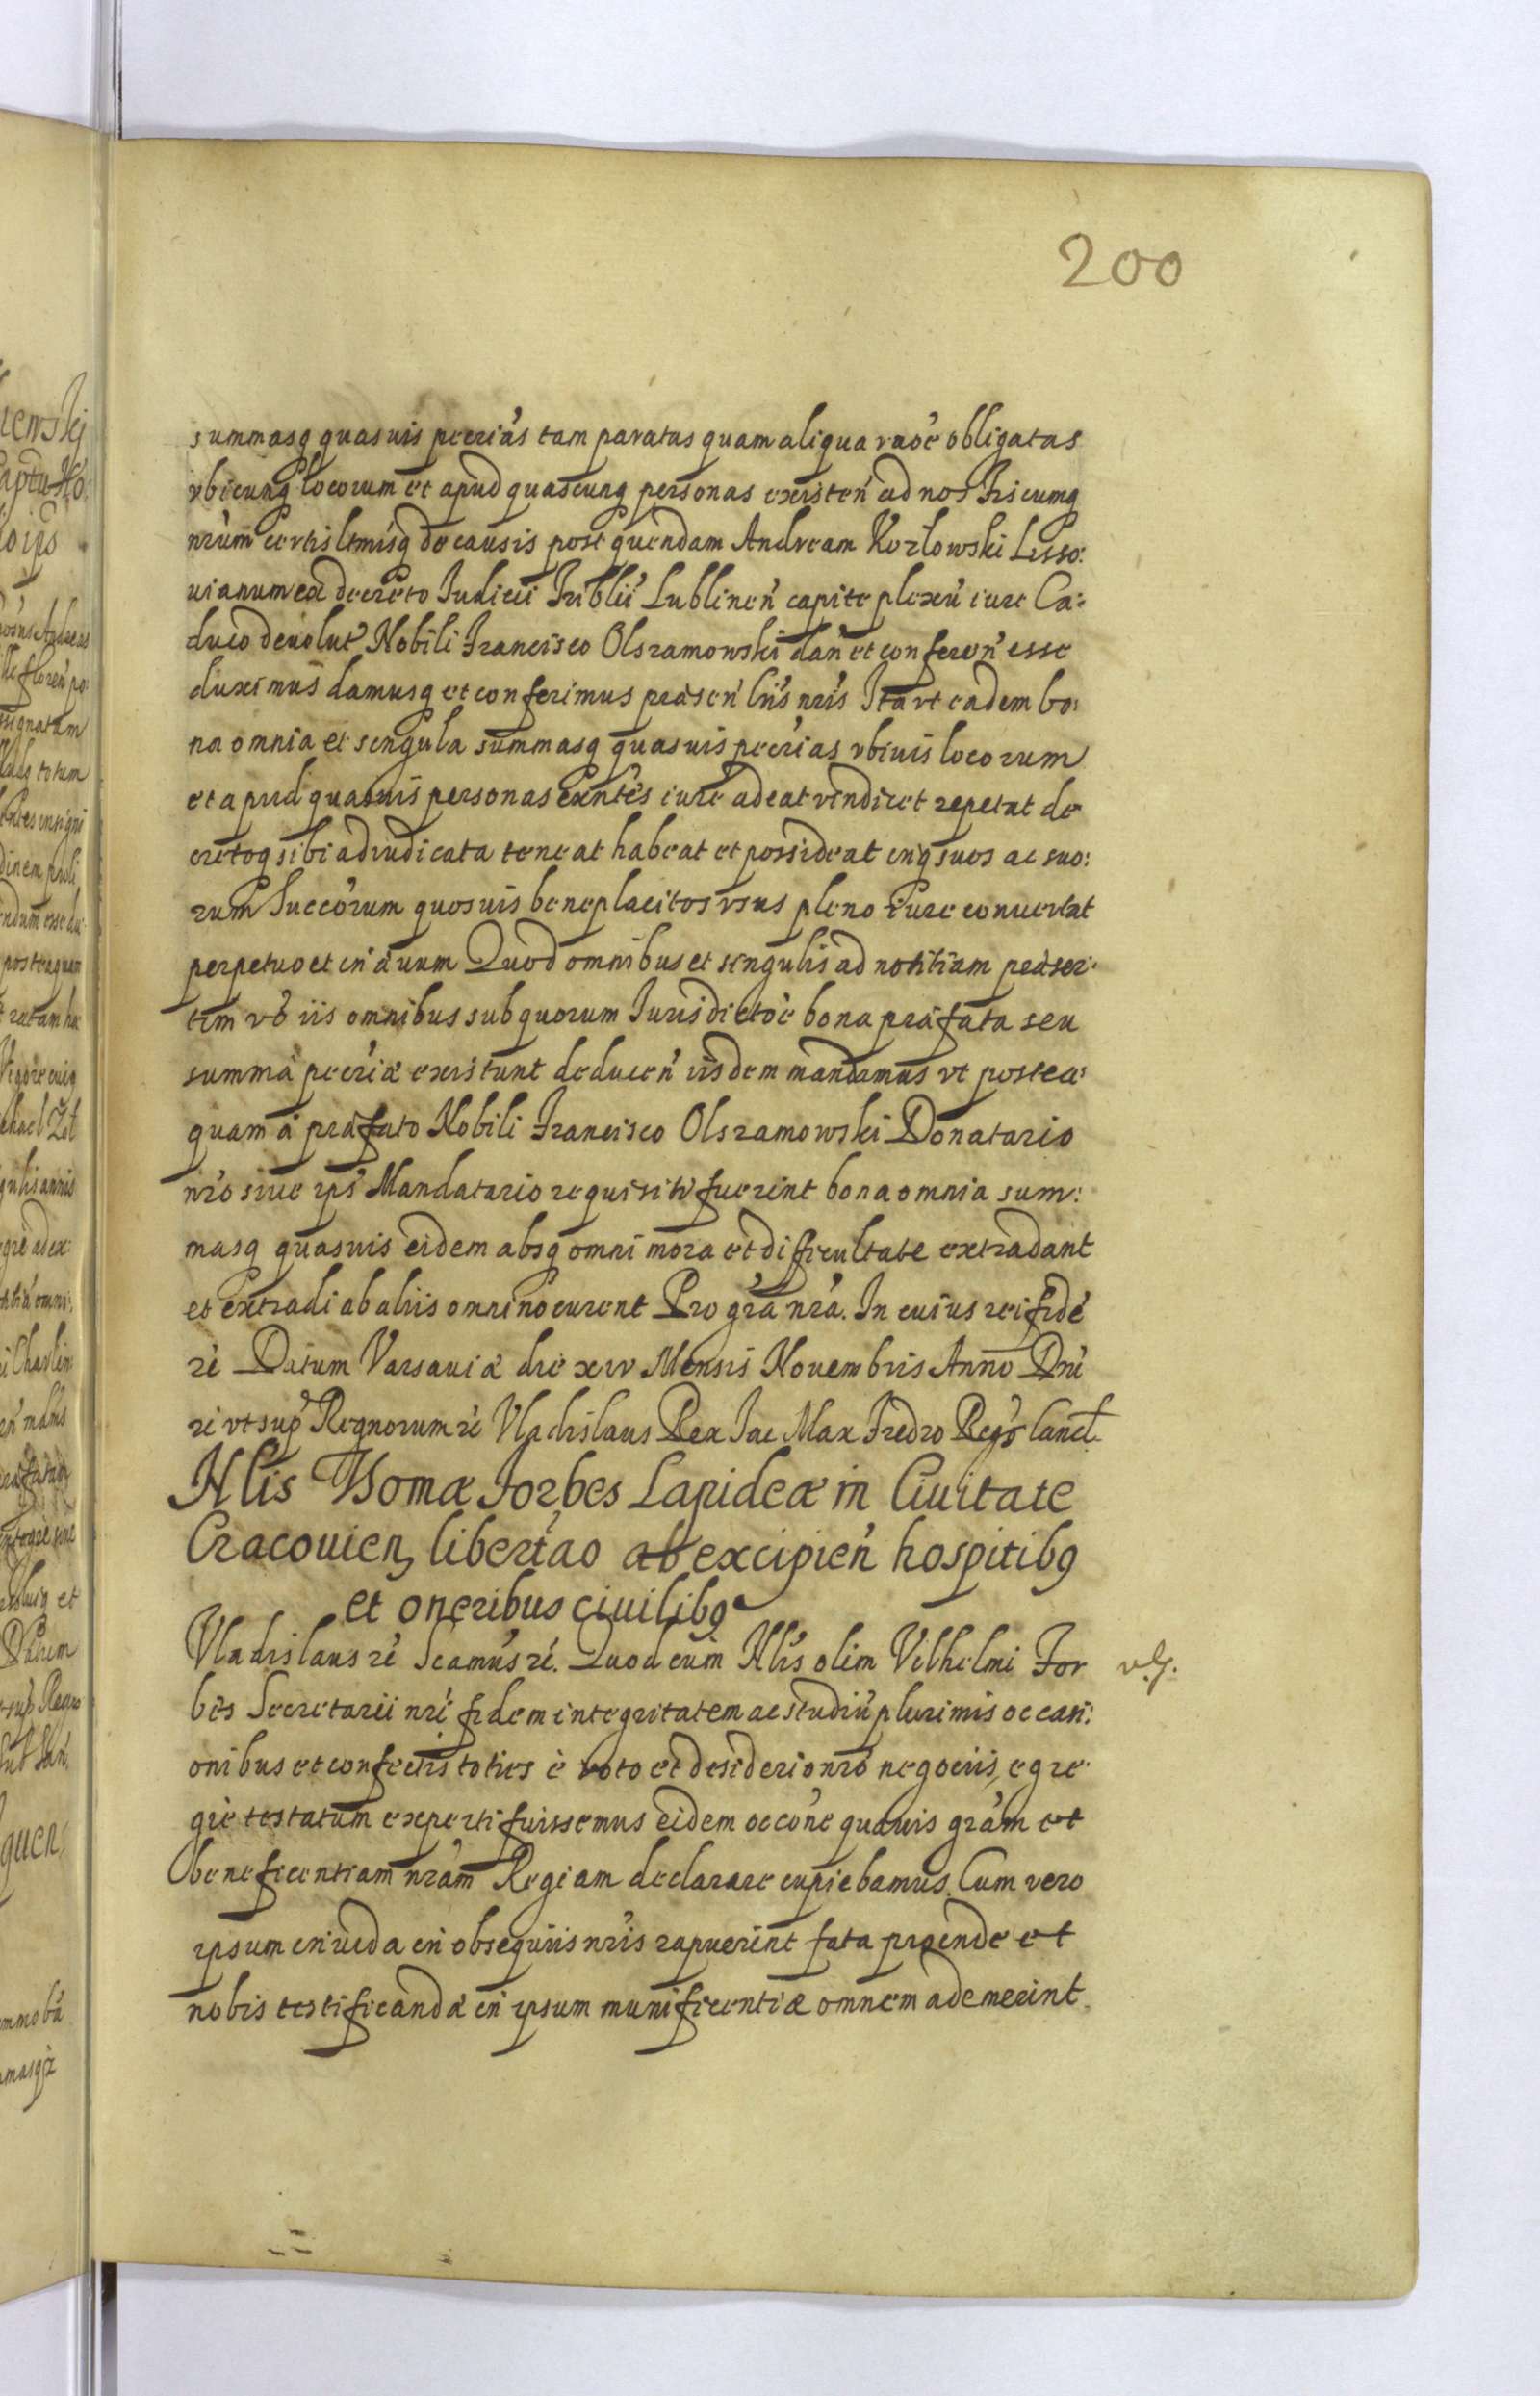 200
summasq quasuis pecrias tam paratas quam aliqua raoe obligatas
vbicunq locorum et apud quascunq personas existen ad nos Fiscumq
nrum certis ltmisq de causis post quendam Andream Kozlowski Lisso:
uianum ex decreto Iudicii Triblii Lublinen capite plexu iure Ca:
duco deuolut Nobili Francisco Olszamowski dan et conferen esse
duximus damusq et conferimus præsen lris nris Ita vt eadem bo:
na omnia et singula summasq quasuis pecrias vbiuis locorum
et apud quasuis personas exntes iure adeat vindicet repetat de
cretoq sibi adiudicata teneat habeat et possideat inq suos ac suo:
rum Succorum quosuis beneplacitos vsus pleno iure conuertat
perpetuo et in æuum Quod omnibus et singulis ad notitiam præser:
tim vo iis omnibus sub quorum Iurisdictoe bona præfata seu
summæ pecriæ existunt deducen iisdem mandamus vt postea:
quam à præfato Nobili Francisco Olszamowski Donatario
nro siue ips Mandatario requisiti fuerint bona omnia sum:
masq quasuis eidem absq omni mora et difficultate extradant
et extradi ab aliis omnino curent Pro gra nra. In cuius rei fide
rc Datum Varsauiæ die xiv Mensis Nouembris Anno Dni
rc vt sup Regnorum rc Vladislaus Rex Jac Max Fredro Regs Cancl.
Nlis Thomæ Forbes Lapideæ in Ciuitate
Cracouien, libertao ab excipien hospitib9
et oneribus ciuilib9
Vladislaus rc Scamus rc. Quod cum Nlis olim Vilhelmi For
bes Secretarii nri fidem integritatem ac studiu plurimis occasi:
onibus et confectis toties è voto et desiderio nro negociis, egre
giè testatum experti fuissemus eidem occone quauis gram et
beneficentiam nram Regiam declarare cupiebamus. Cum vero
ipsum inuida in obsequiis nris rapuerint fata proinde et
nobis testificandæ in ipsum munificentiæ omnem ademerint